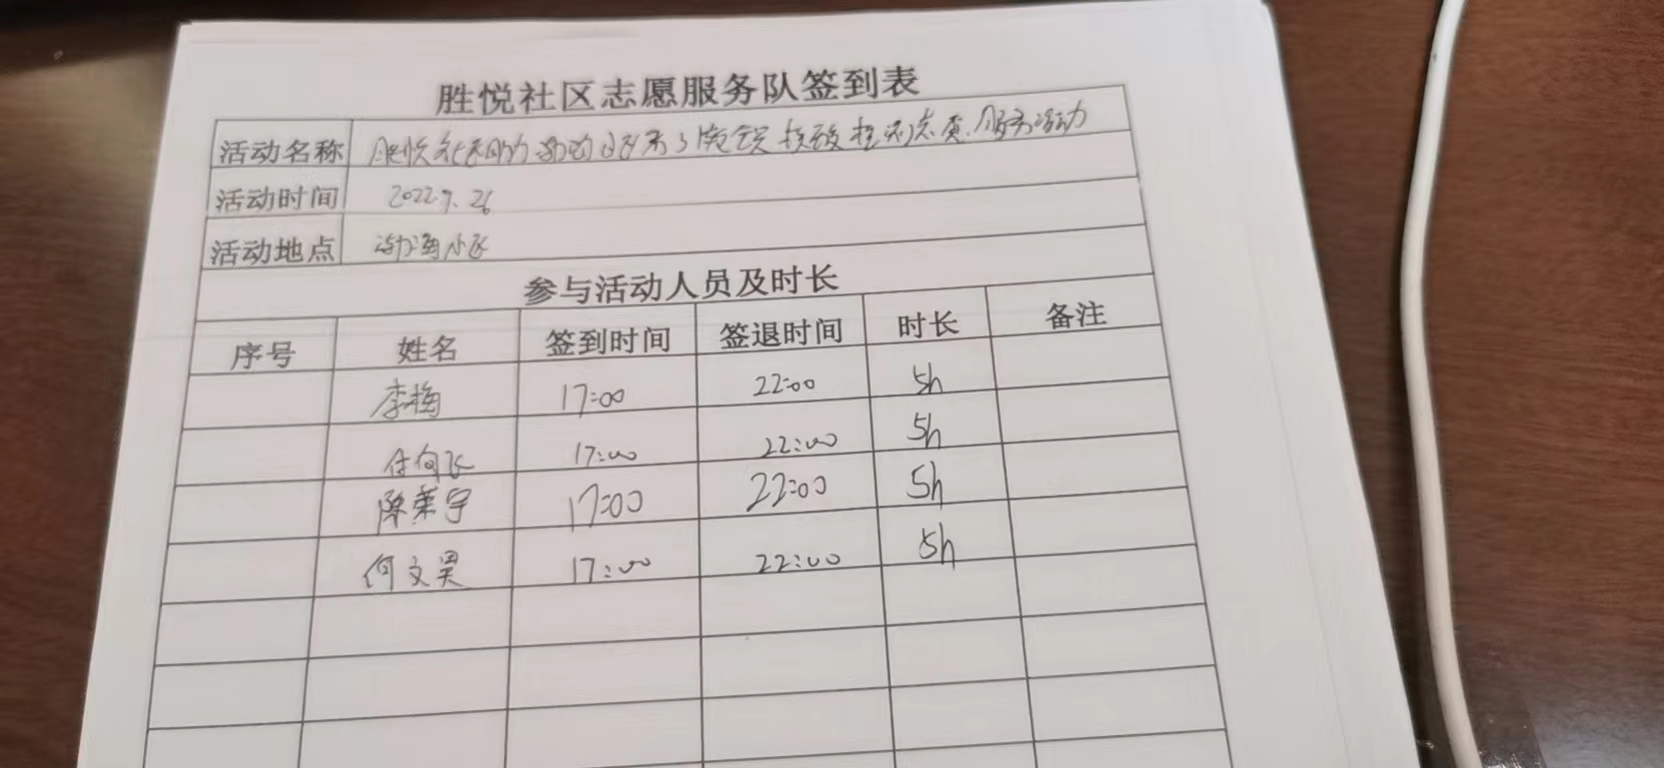 胜悦社区志愿服务队签到表
活动名称 胜悦社区 核酸检测志愿服务活动
活动时间 2022.9.26
活动地点 渤海小区
参与活动人员及时长
序号 姓名 签到时间 签退时间 时长 备注
李梅 17:00 22:00 5h
任向飞 17:00 22:00 5h
陈莱宇 17:00 22:00 5h
何文昊 17:00 22:00 5h